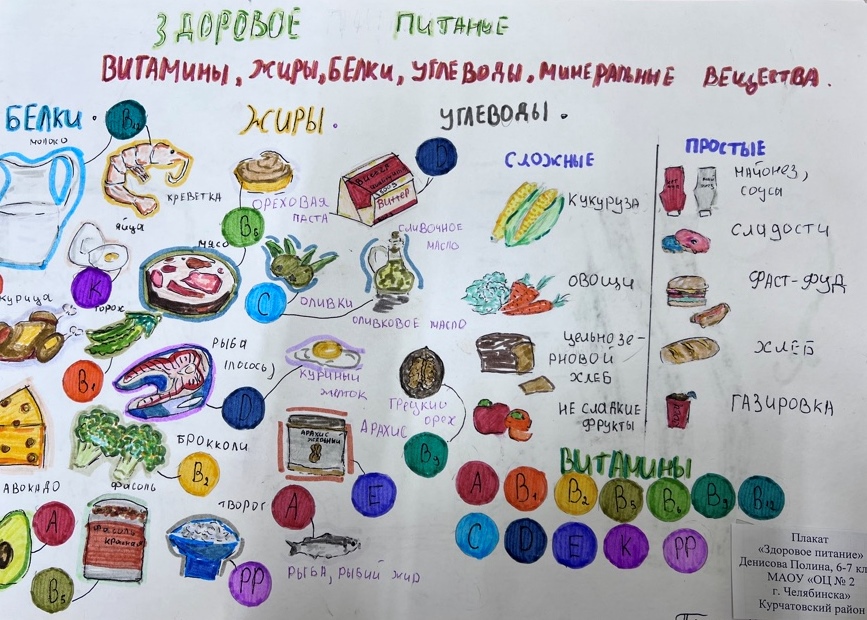 ЗДОРОВОЕ ПИТАНИЕ
ВИТАМИНЫ, ЖИРЫ, БЕЛКИ, УГЛЕВОДЫ, МИНЕРАЛЬНЫЕ ВЕЩЕСТВА.
БЕЛКИ.
МОЛОКО
B12
КРЕВЕТКА
ЯЙЦА
K
МЯСО
B5
КУРИЦА
ГОРОХ
B1
РЫБА
(ЛОСОСЬ)
D
БРОККОЛИ
B2
АВОКАДО
A
B5
ФАСОЛЬ
ФАСОЛЬ
КРАСНАЯ
ТВОРОГ
PP
ЖИРЫ.
ОРЕХОВАЯ
ПАСТА
BUTTER
D
СЛИВОЧНОЕ
МАСЛО
C
ОЛИВКИ
ОЛИВКОВОЕ МАСЛО
КУРИНЫЙ
ЖЕЛТОК
ГРЕЦКИЙ
ОРЕХ
B9
АРАХИС
АРАХИС
E
A
РЫБА, РЫБИЙ ЖИР
УГЛЕВОДЫ.
СЛОЖНЫЕ
КУКУРУЗА
ОВОЩИ
ЦЕЛЬНОЗЕ-
РНОВОЙ
ХЛЕБ
НЕ СЛАДКИЕ
ФРУКТЫ
ПРОСТЫЕ
МАЙОНЕЗ,
СОУСА
СЛАДОСТИ
ФАСТ-ФУД
ХЛЕБ
ГАЗИРОВКА
ВИТАМИНЫ
A B1 B2 B5 B6 B9 B12
C D E K PP
Плакат
«Здоровое питание»
Денисова Полина, 6-7 кл
МАОУ «ОЦ № 2
г. Челябинска»
Курчатовский район